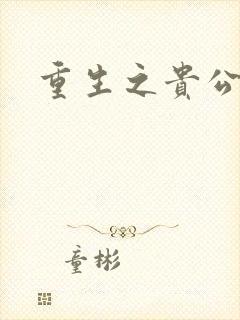 重生之貴公
童彬